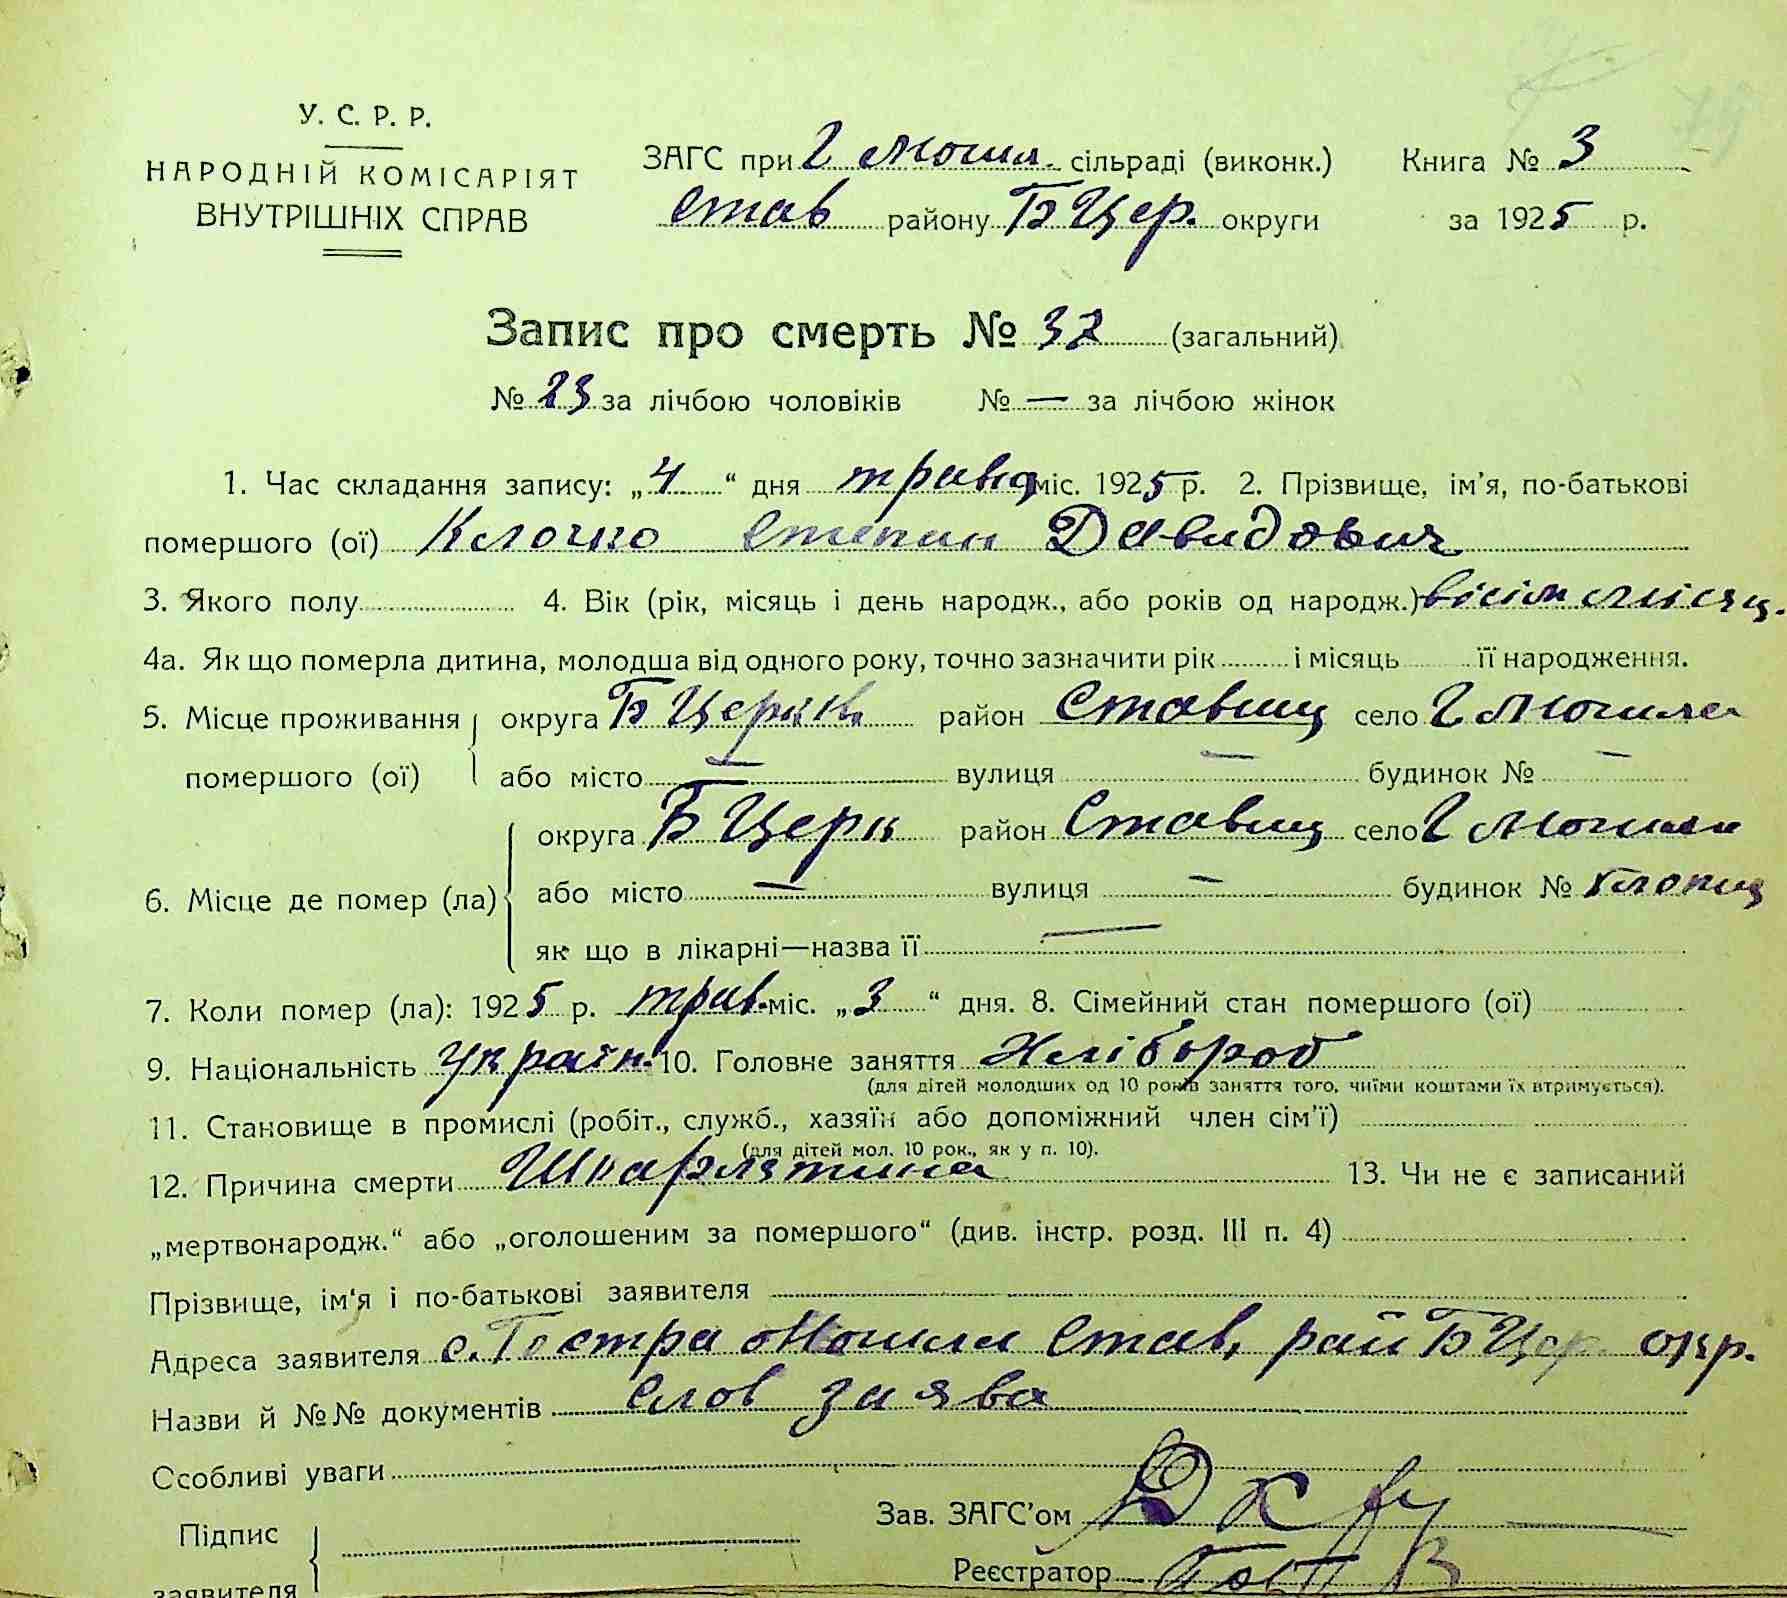 У. С. Р. Р.
НАРОДНІЙ КОМІСАРІЯТ
ВНУТРІШНІХ СПРАВ
ЗАГС при Г Могил. сільраді (виконк.) Книга № 3
Став району Б Цер. округи за 1925 р.
Запис про смерть № 32 (загальний)
№ 23 за лічбою чоловіків № — за лічбою жінок
1. Час складання запису: „4“ дня травня міс. 1925 р. 2. Прізвище, ім'я, по-батькові
помершого (ої) Клочко Степан Давидович
3. Якого полу 4. Вік (рік, місяць і день народж., або років од народж.) вісім місяц.
4а. Як що померла дитина, молодша від одного року, точно зазначити рік і місяць її народження.
5. Місце проживання округа Б Церкв. район Ставищ село Г Могила
помершого (ої) або місто — вулиця — будинок № —
округа Б Церк район Ставищ село Г Могила
6. Місце де помер (ла) або місто — вулиця — будинок № хлопец
як що в лікарні—назва її —
7. Коли помер (ла): 1925 р. трав. міс. „3“ дня. 8. Сімейний стан помершого (ої)
9. Національність Україн. 10. Головне заняття Хлібороб
(для дітей молодших од 10 років заняття того, чиїми коштами їх втримується).
11. Становище в промислі (робіт., служб., хазяїн або допоміжний член сім'ї)
(для дітей мол. 10 рок., як у п. 10).
12. Причина смерти Шкарлятина 13. Чи не є записаний
„мертвонародж.“ або „оголошеним за помершого“ (див. інстр. розд. III п. 4)
Прізвище, ім'я і по-батькові заявителя
Адреса заявителя с. Гостра Могила Став, рай Б Цер окр.
Назви й №№ документів Слов заява
Особливі уваги
Зав. ЗАГС'ом
Підпис
Реєстратор
заявителя